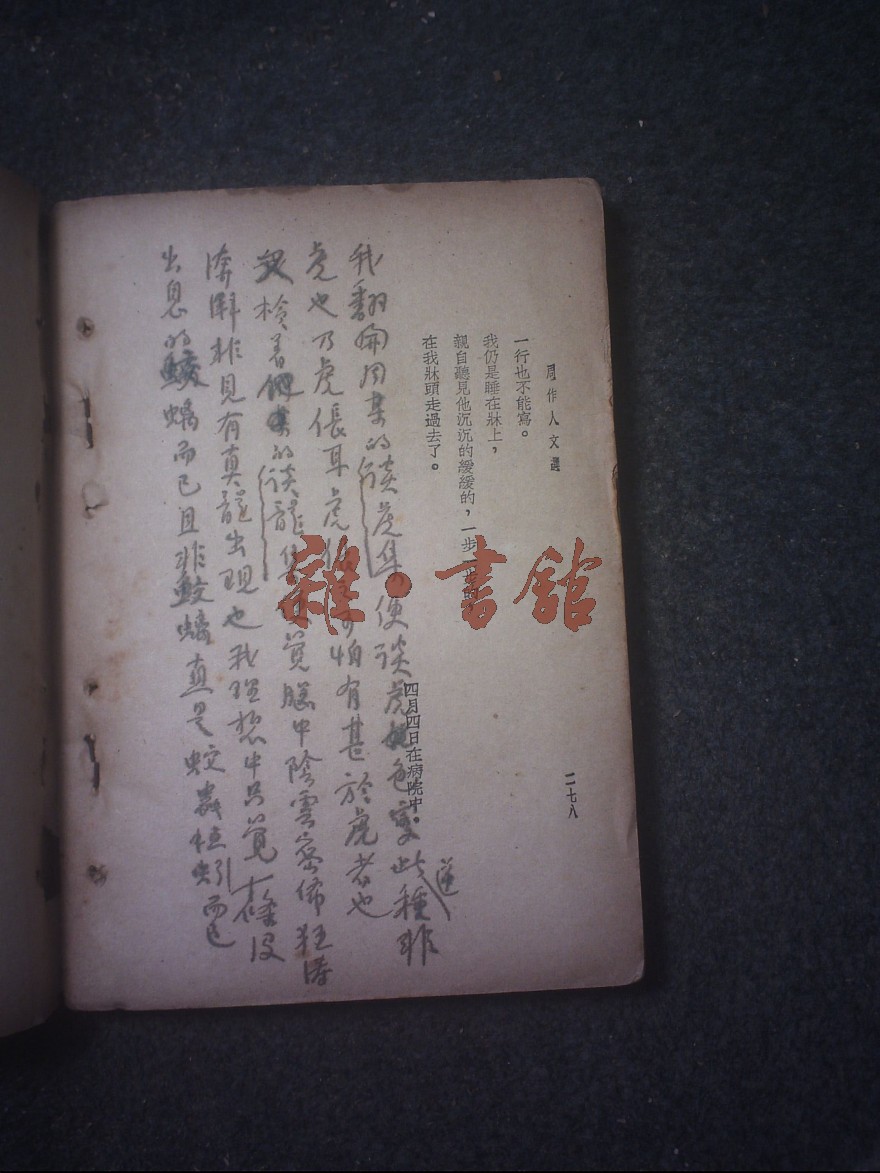 周作人文選
一行也不能寫。
我仍是睡在牀上，
親自聽見他沉沉的緩緩的，一步一步的，
在我牀頭走過去了。
四月四日在病院中。
二七八
我翻開周某的談虎集便談虎色變此種非
虎也乃虎倀耳虎倀可怕有甚於虎者也
又檢著他的談龍集覺腦中陰雲密佈狂濤
湃非見有真龍出現也我理想中只覺一條沒
出息的蛟螭而已且非蛟螭真是蚊蟲蚯蚓而已
這
雜·書館